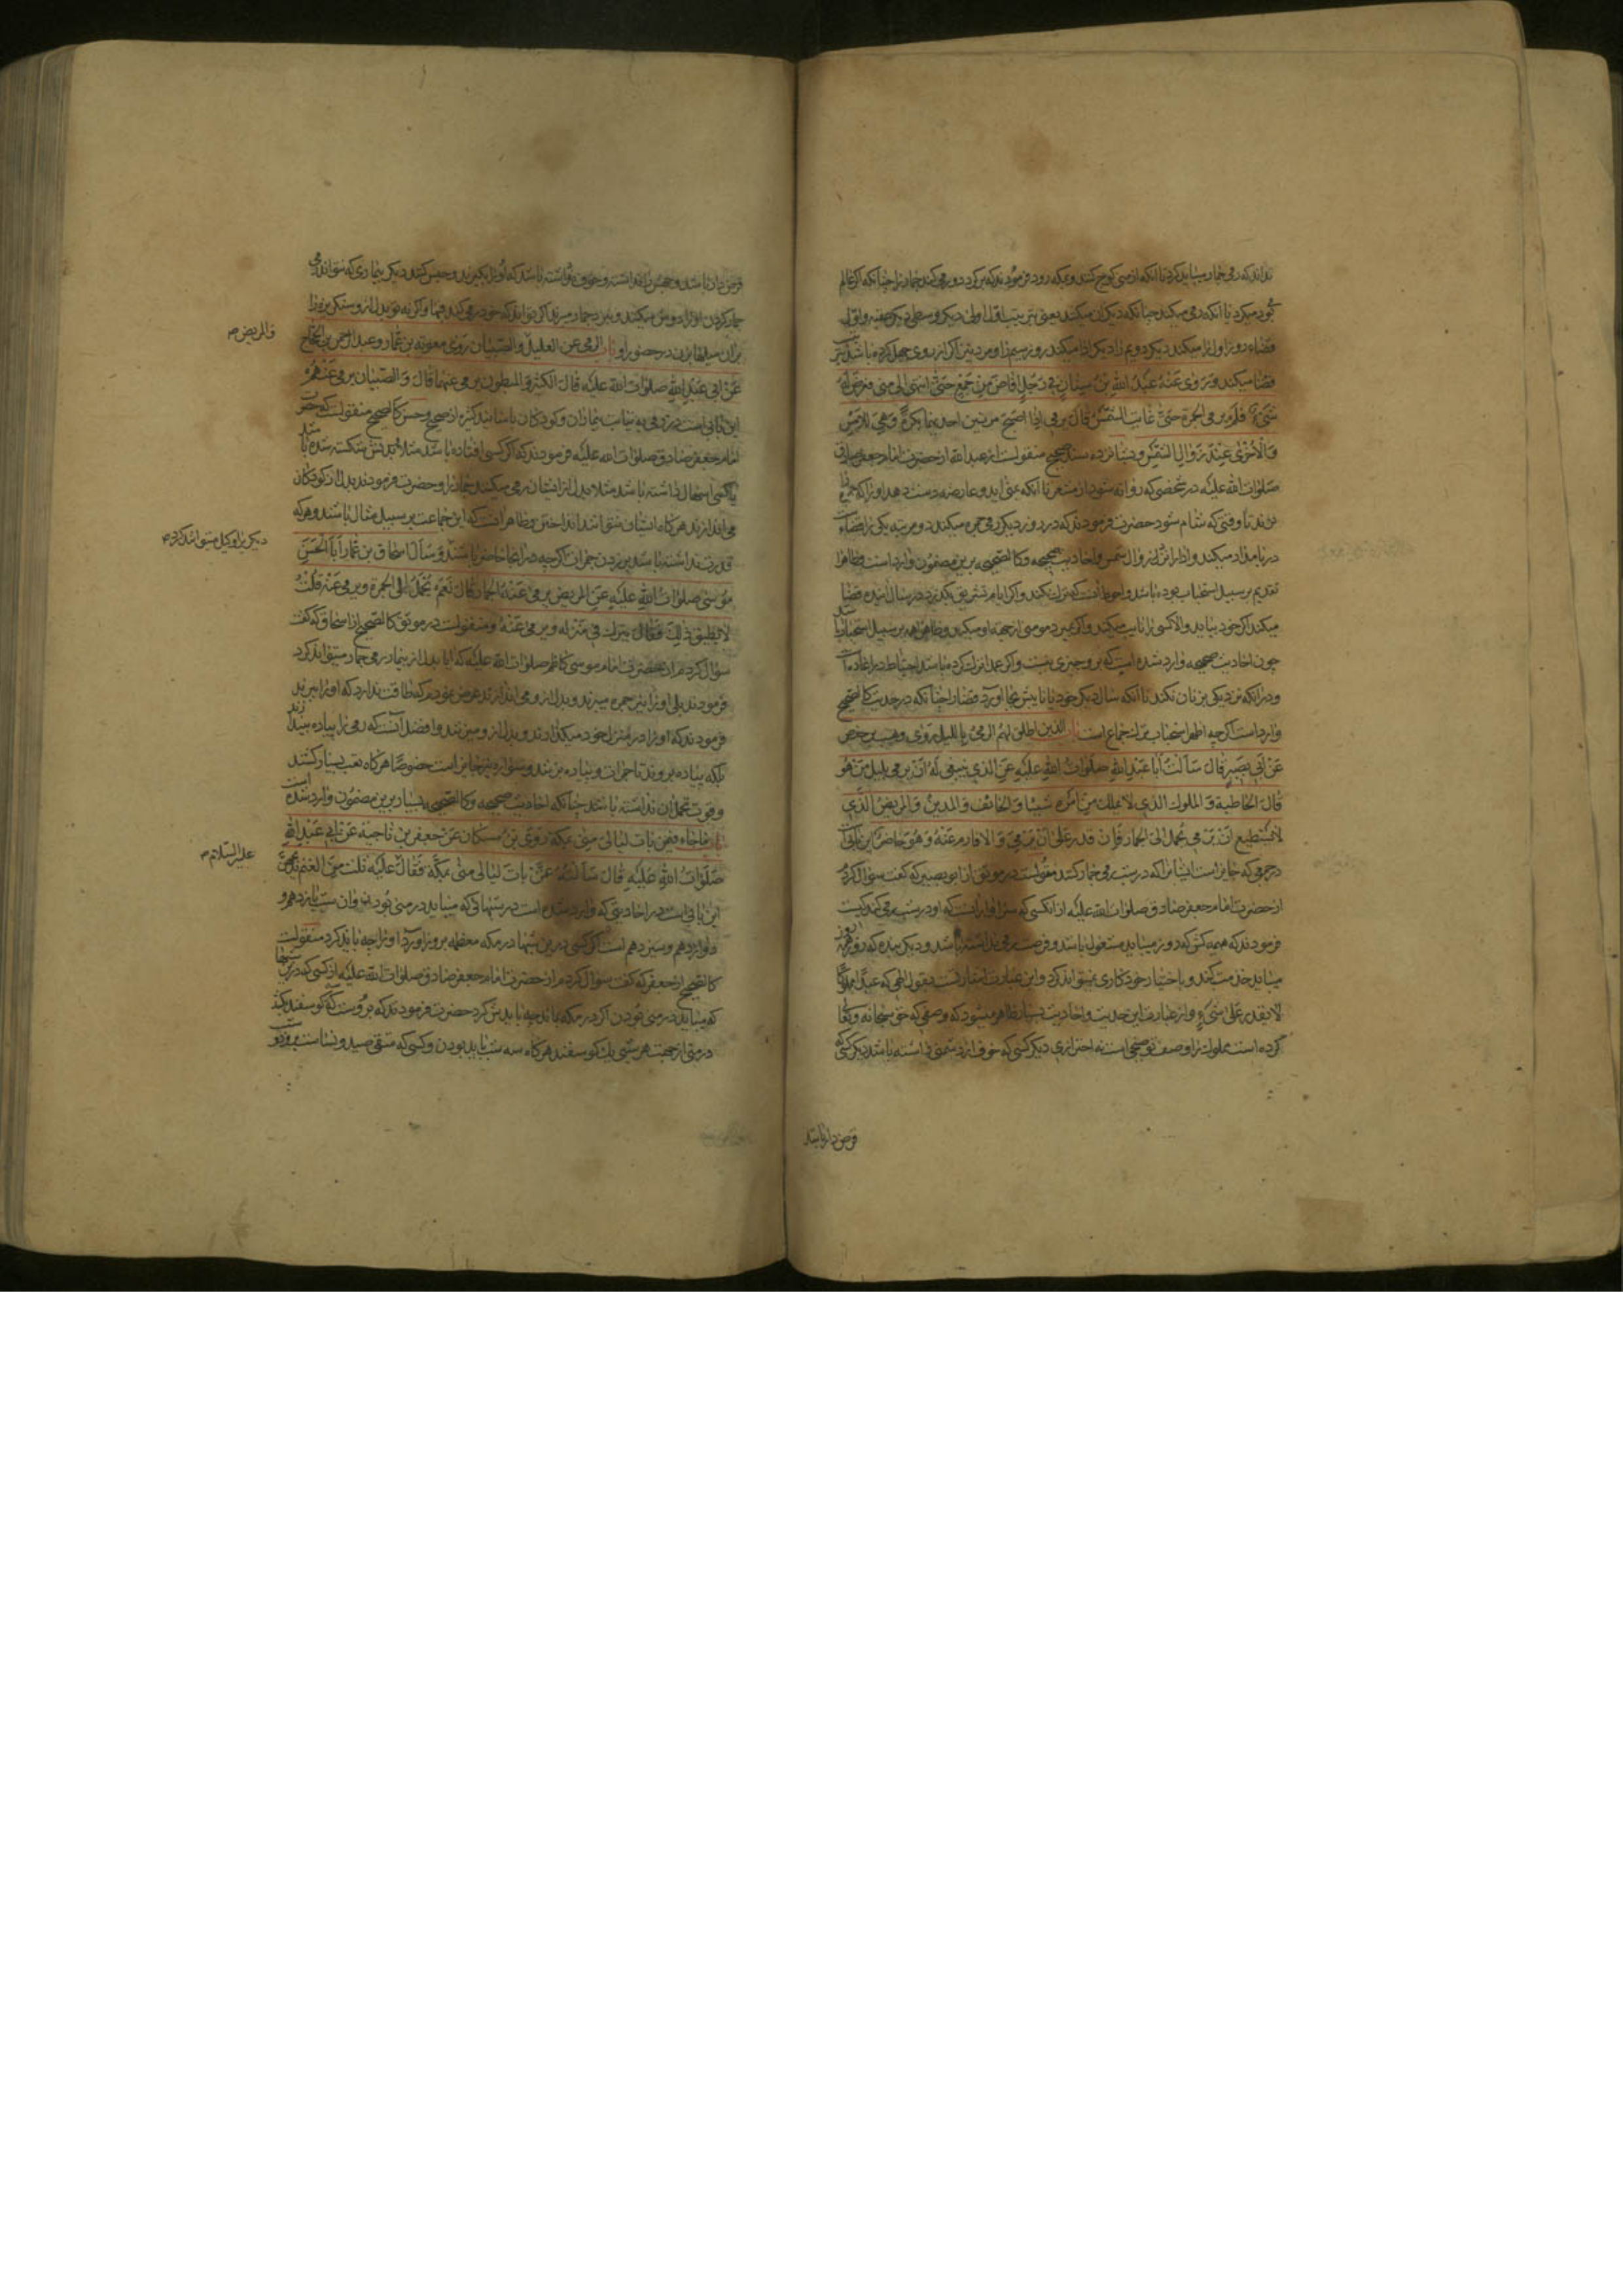 نداند که رمی جمار میباید کرد تا آنکه از منی کوچ کنند و بمکه رود فرمودند که برگردد و رمی کند جمار را چنانکه اگر عالم
می بود میکرد یا آنکه رمی میکند چنانکه دیگران میکنند یعنی بترتیب اول اولی دیگر وسطی دیگر عقبه و اول
قضاء روز اول را میکند دیگر دویم را دیگر ادا میکند روز سیم را و مرد نیز اگر از روی جهل کرده باشد
قضا میکند وَ رَوی عَنْهُ عَبْدُ اللهِ بْنُ سِنانٍ فی رَجُلٍ اَفاضَ مِنْ جَمْعٍ حَتّی انتهی اِلی منی فعرض له
شَیءٌ فلم یرم الجمرة حَتّی غابَت الشَّمْسُ قالَ یرمی اِذا اَصْبَحَ مرتین احدیهما بکرةً وَ هِیَ للاَمْسِ
وَ الْاُخْری عِنْدَ زَوالِ الشَّمْسِ و بسند صحیح منقولست از عبد الله از حضرت امام جعفر صادق
صلوات الله علیه در شخصی که روانه شود از مشعر تا آنکه بمنی اید و عارضه دست دهد او را که جمره را
نزند تا وقتی که شام شود حضرت فرمودند که در روز دیگر رمی جمره میکند دو مرتبه یکی را قضاء
در بامداد میکند و ادا را نزد زوال شمس و احادیث صحیحه و کالصحیحه برین مضمون وارد است و ظاهرا
تقدیم بر سبیل استحباب بوده باشد و احوط آنست که ترک نکند و اگر ایام تشریق بگذرد در سال آینده قضا
میکند اگر خود بیاید و الا کسی را نایب میکند و اگر بمیرد مومنی از جهة او میکند و ظاهرا همه بر سبیل استحباب باشد
چون احادیث صحیحه وارد شده است که برو چیزی نیست و اگر عمدا ترک کرده باشد احتیاط در اعاده است
و در آنکه نزدیکی بزنان نکند تا آنکه سال دیگر خود یا نایبش بجا آورد قضا را چنانکه در حدیث کالصحیح
وارد است اگر چه اظهر استحباب ترک جماع است باب الذین اطلق لهم الرمی باللیل رَوی وهیب بن حفص
عَنْ اَبی بَصیرٍ قالَ سَاَلْتُ اَبا عَبْدِ اللهِ صَلَواتُ اللهِ عَلَیْهِ عَنِ الذی ینبغی لَهُ اَنْ یرمی بلیل مَنْ هُوَ
قالَ الحاطبة وَ المملوک الذی لا یملک مِنْ اَمْرِه شَیْئا وَ الخائف وَ المدین وَ المریض الَّذی
لا یستطیع اَنْ یَرْمی یُحمل الی الجمار فَاِنْ قدر عَلی اَنْ یَرْمی وَ الا فارم عَنْهُ وَ هُوَ حاضر این بابیست
در جمعی که جایز است ایشانرا که در شب رمی جمار کنند منقولست در موثق از ابو بصیر که گفت سؤال کردم
از حضرت امام جعفر صادق صلوات الله علیه از آنکسی که سزاوار آنست که او در شب رمی کند کیست
فرمودند که هیمه کش که در روز میباید مشغول باشد و فرصت رمی نداشته باشد و دیگر بنده که در همه روز
میباید خدمت کند و باختیار خود کاری نمیتواند کرد و این عبارت اشارتست بقول الهی که عبدًا مملوکًا
لا یقدر عَلی شَیْءٍ و از عبارت این حدیث و احادیث بسیار ظاهر میشود که وصفی که حق سبحانه و تعالی
کرده است مملوک را وصف توضیحی است نه احترازی دیگر کسی که خوف از دشمنی داشته باشد دیگر کسی که
قرض دار باشد
قرض دار باشد و خوف داشته باشد که او را بگیرند و حبس کنند دیگر بیماری که نتواند رمی
جمار کردن او را بدوش میکنند و بنزد جمار میبرند اگر تواند که خود رمی کند فبها و اگر نه تو بدل ازو سنگریزه را
بران میلها بزن در حضور او باب الرمی عن العلیل و الصبیان رَوی معویة بن عَمّار و عبد الرحمن بن الحجاج
عَنْ اَبی عَبْدِ اللهِ صلوات الله علیه قالَ الکسیر وَ المبطون یرمی عنهما قالَ وَ الصبیان یرمی عَنْهُمْ
والمریض
این بابی است در رمی به نیابت بیماران و کودکان باسانید کثیره از صحیح و حسن کالصحیح منقولست که حضرت
امام جعفر صادق صلوات الله علیه فرمودند که اگر کسی افتاده باشد مثلا بدنش شکسته شده باشد
یا کسی اسهال داشته باشد مثلا بدل از ایشان رمی میکنند جمار را و حضرت فرمودند بدل از کودکان
می اندازند هرگاه ایشان نتوانند انداختن و ظاهر آنست که این جماعت بر سبیل مثال باشند و هر که
قدرت نداشته باشد بر زدن جمرات اگر چه در آنجا حاضر باشند وَ سَاَلَ اسحاق بن عَمّار اَبَا الْحَسَنِ
دیگری را وکیل میتوانند کردم
مُوسی صلوات الله عَلَیْهِ عَنِ المریض یرمی عَنْهُ الجمار قالَ نَعَمْ یُحْمَلُ اِلی الجمرة ویرمی عَنْهُ قُلْتُ
لا یُطیق ذٰلِکَ فَقالَ یترک فی مَنْزِله و یرمی عَنْهُ و منقولست در موثق کالصحیح از اسحاق که گفت
سؤال کردم از حضرت امام موسی کاظم صلوات الله علیه که ایا بدل از بیمار رمی جمار میتواند کرد
فرمودند بلی او را بنزد جمره میبرند و بدل ازو می اندازند عرض نمودم که طاقت ندارد که او را ببرند
فرمودند که او را در منزل خود میگذارند و بدل ازو میزنند و افضل آنست که رمی را پیاده بیندازند
بلکه پیاده بروند تا جمرات و پیاده بزنند و سواره نیز جایز است خصوصًا هرگاه تعب بسیار کشند
و قوت تحمل آن نداشته باشند چنانکه احادیث صحیحه و کالصحیحه بسیار برین مضمون وارد شده است
باب ما جاء فیمن بات لیالی منی بمکة رَوی ابن مسکان عَنْ جعفر بن ناجیة عَنْ اَبی عَبْدِ اللهِ
علیه السلام
صَلَواتُ اللهِ عَلَیْهِ قالَ سَاَلْتُهُ عَمَّنْ باتَ لیالی منی بمکّة فقالَ عَلَیْه ثلث مِنَ الغنم یذبحهن
این بابی است در احادیثی که وارد شده است در شبهائی که میباید در منی بودن و آن شب یازدهم و
دوازدهم و سیزدهم است اگر کسی درین شبها در مکه معظمه بروز آورد او را چه باید کرد منقولست
کالصحیح از جعفر که گفت سؤال کردم از حضرت امام جعفر صادق صلوات الله علیه از کسی که درین شبها
که میباید در منی بودن اگر در مکه بماند چه بایدش کرد حضرت فرمودند که بروست که سه گوسفند بکشد
در منی از جهت هر شبی یک گوسفند هرگاه سه شب باید بودن و کسی که متقی صید و نسا است